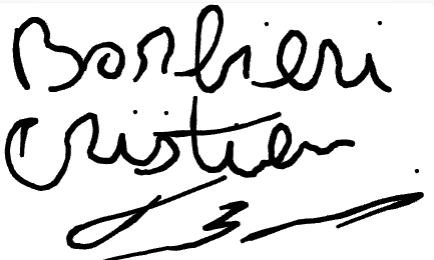 Borbieri
Cristian